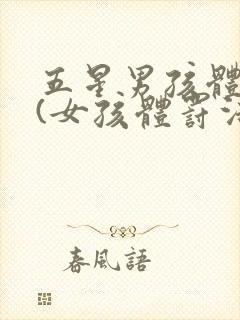 五星男孩體
(女孩體討
春風語